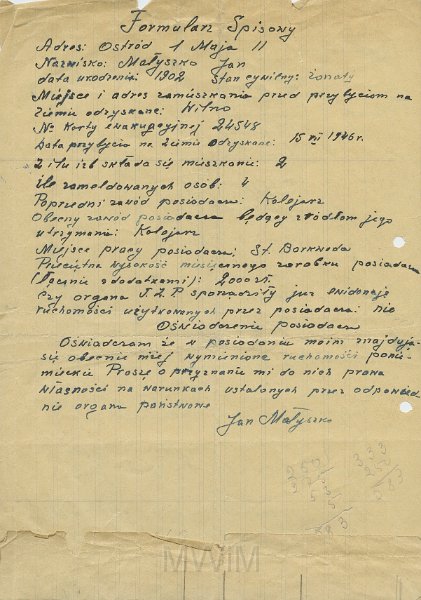 Formularz Spisowy
Adres: Ostród 1 Maja 11
Nazwisko: Małyszko Jan
data urodzenia 1902 Stan cywilny: żonaty
Miejsce i adres zamieszkania przed przybyciem na
Ziemie odzyskane: Wilno
Nr Karty ewakuacyjnej 24548
Data przybycia na Ziemie Odzyskane: 15 1946 r.
Z ilu izb składa się mieszkanie: 2
ile zameldowanych osób: 4
Poprzedni zawód posiadacza: Kolejarz
Obecny zawód posiadacza będący źródłem jego
utrzymania: Kolejarz
Miejsce pracy posiadacza: St.
Przeciętna wysokość miesięcznego zarobku posiadacza
(łącznie z dodatkami): 2000 zł.
Czy organa T.Z.P sporządziły już ewidencję
ruchomości użytkowanych przez posiadacza: nie
Oświadczenie posiadacza
Oświadczam że w posiadaniu moim znajdują-
się obecnie niżej wymienione ruchomości ponie-
mieckie Proszę o przyznanie mi do nich prawa
własności na warunkach ustalonych przez odpowied
nie organa państwowe
Jan Małyszko
333
MWIM